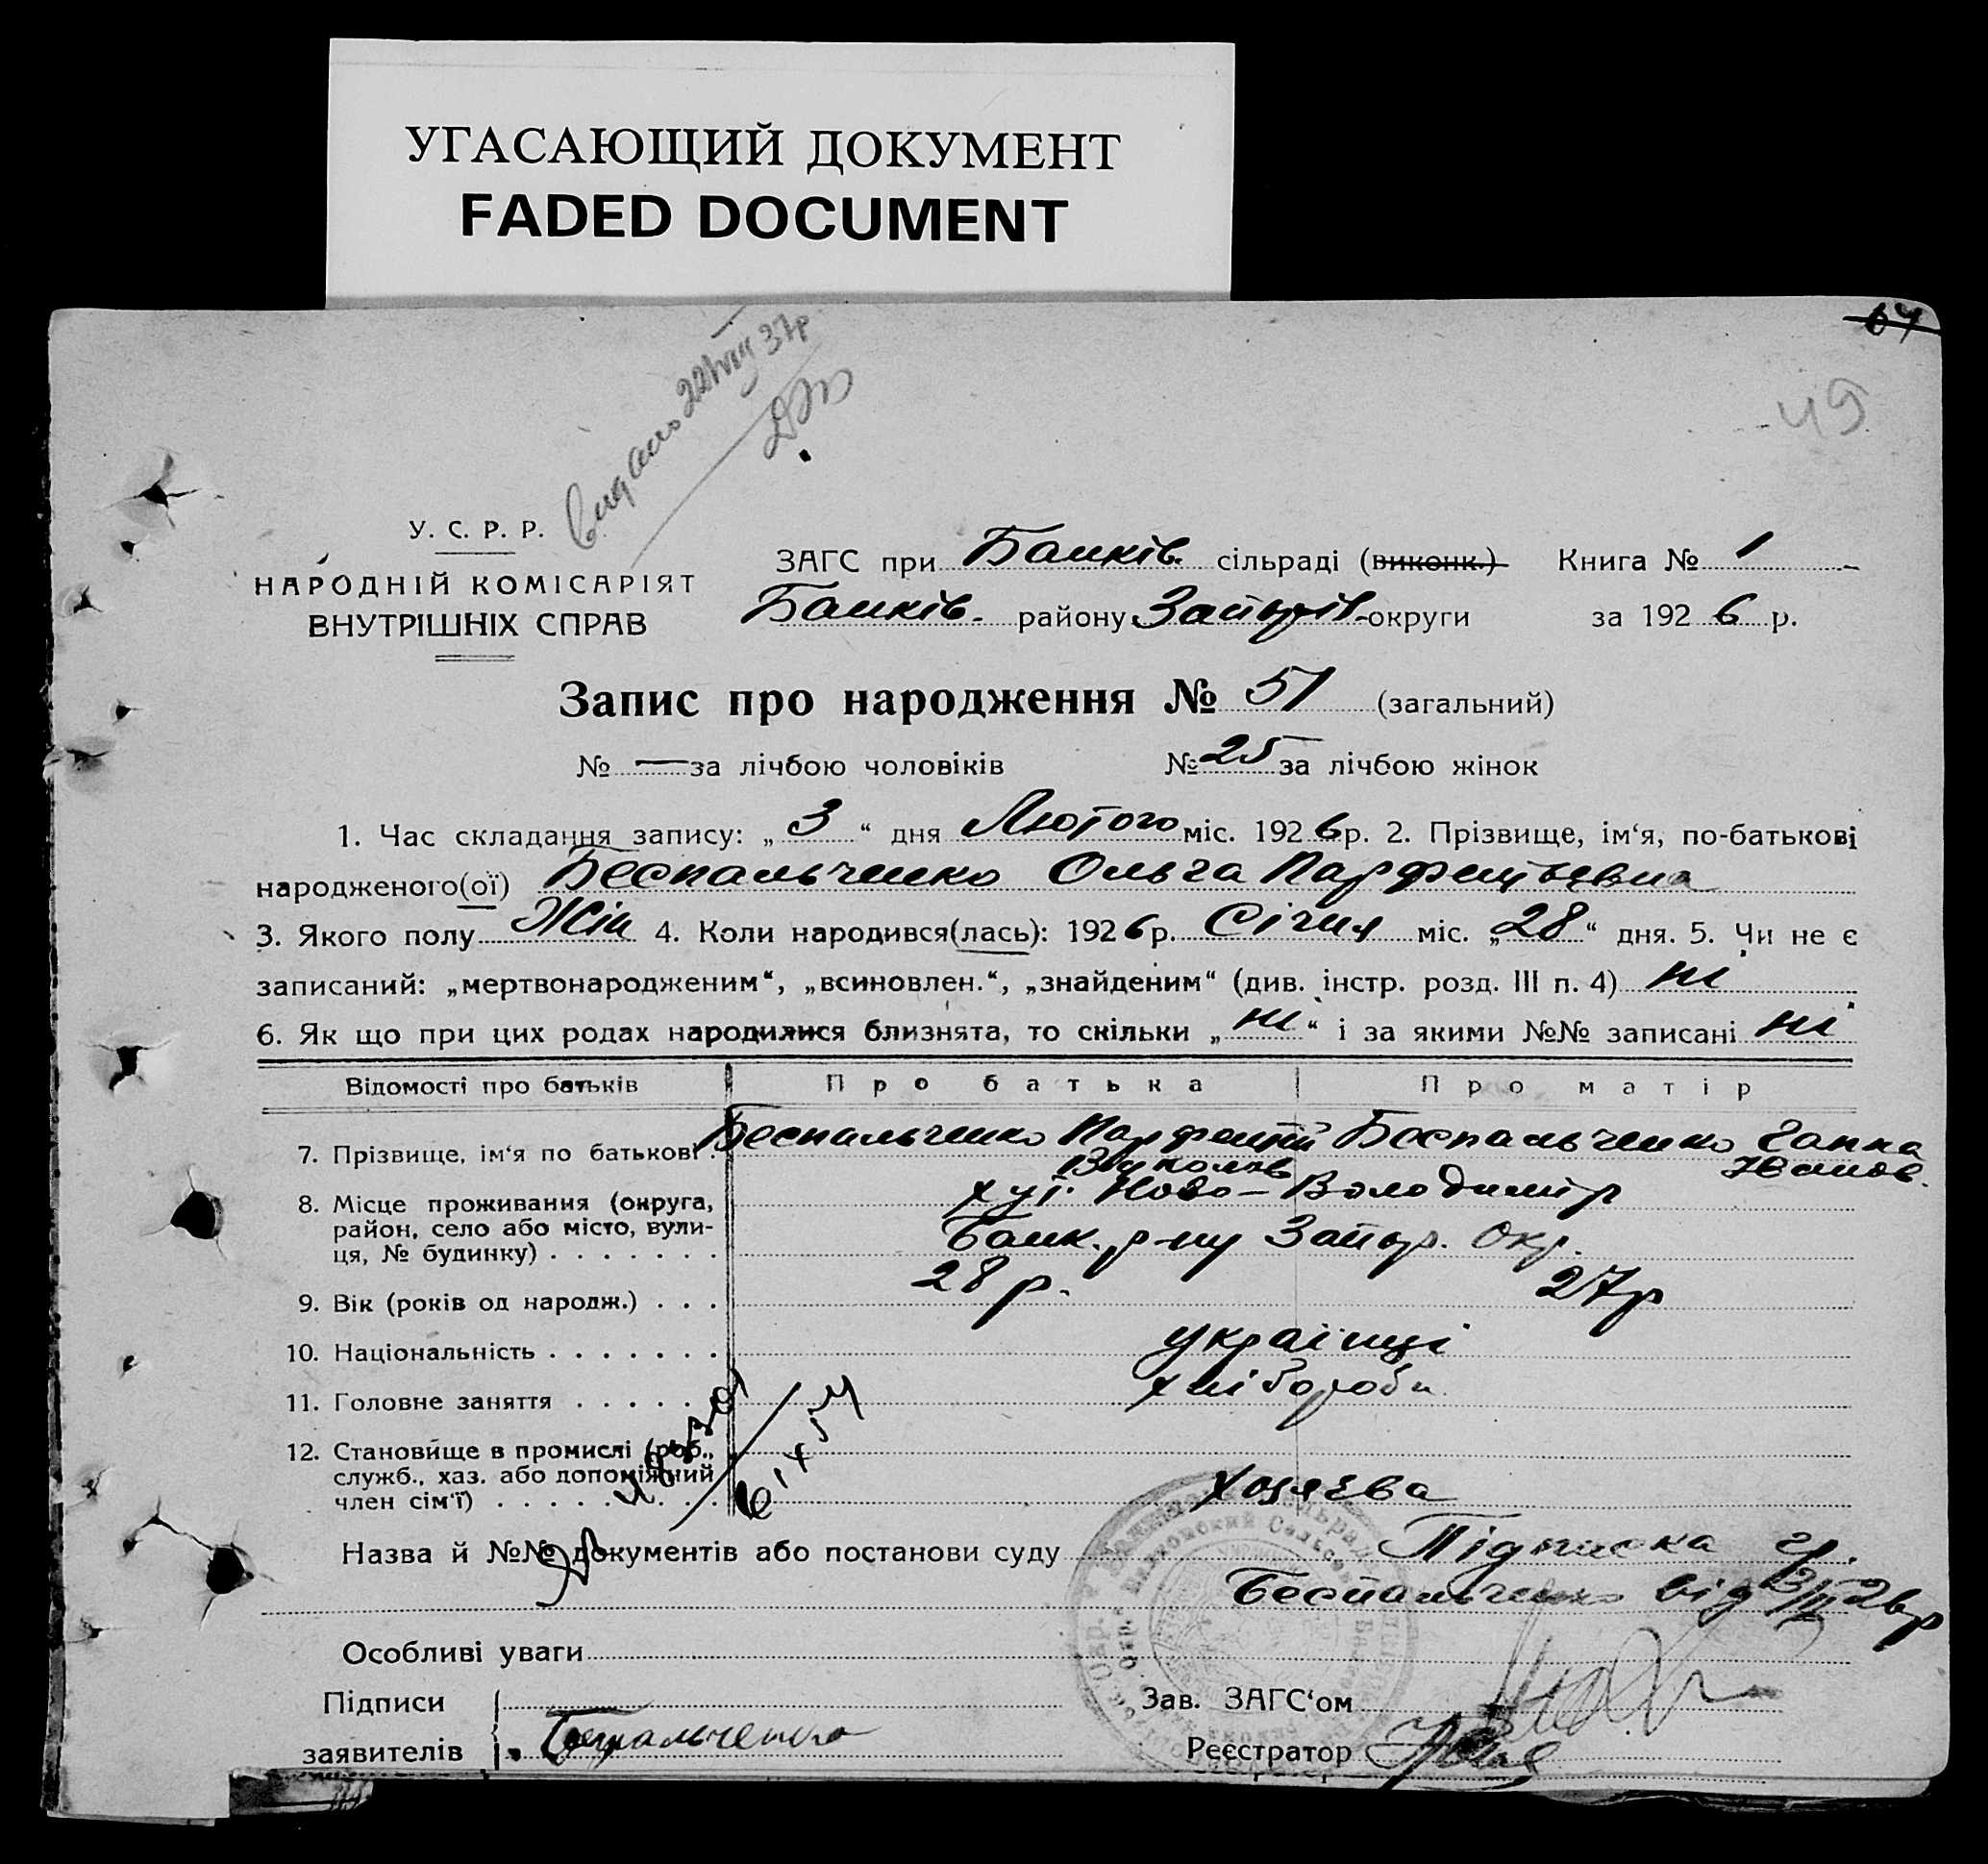 УГАСАЮЩИЙ ДОКУМЕНТ
FADED DOCUMENT
64
49
видано 22/VIII 37р
У. С. Р. Р.
НАРОДНІЙ КОМІСАРІЯТ
ВНУТРІШНІХ СПРАВ
ЗАГС при Банків. сільраді (виконк.) Книга № 1
Банків. району Запоріз. округи за 1926 р.
Запис про народження № 51 (загальний)
№ — за лічбою чоловіків № 25 за лічбою жінок
1. Час складання запису: „3“ дня Лютого міс. 1926 р. 2. Прізвище, ім‘я, по-батькові
народженого(ої) Беспальченко Ольга Парфентьевна
3. Якого полу Жін 4. Коли народився(лась): 1926 р. Січня міс. „28“ дня. 5. Чи не є
записаний: „мертвонародженим“, „всиновлен.“, „знайденим“ (див. інстр. розд. III п. 4) ні
6. Як що при цих родах народилися близнята, то скільки „ні“ і за якими №№ записані ні
Відомості про батьків Про батька Про матір
7. Прізвище, ім‘я по батькові . Беспальченко Парфентій Беспальченко Ганна
Іванов.
8. Місце проживання (округа, хут. Ново-Володимір
район, село або місто, вули- Банк. р-ну Запор. Окр.
ця, № будинку) . . . . . . .
9. Вік (років од народж.) . . . 28 р. 27 р
10. Національність . . . . . . . українці
11. Головне заняття . . . . . . хлібороби
12. Становище в промислі (роб.,
служб., хаз. або допоміжний
член сім‘ї) . . . . . . . . . хозяєва
Назва й №№ документів або постанови суду Підписка гр.
Беспальченко від 3/II 26 р
Особливі уваги
Підписи Зав. ЗАГС‘ом
заявителів Беспальченко Реєстратор